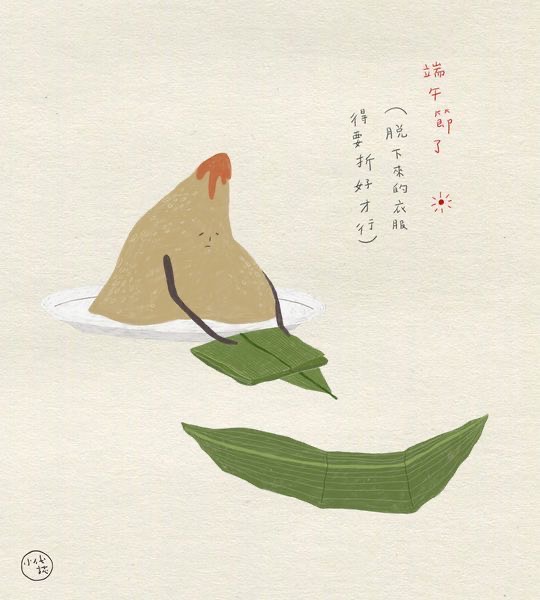 端午節了
（脫下來的衣服
得要折好才行）
小代誌